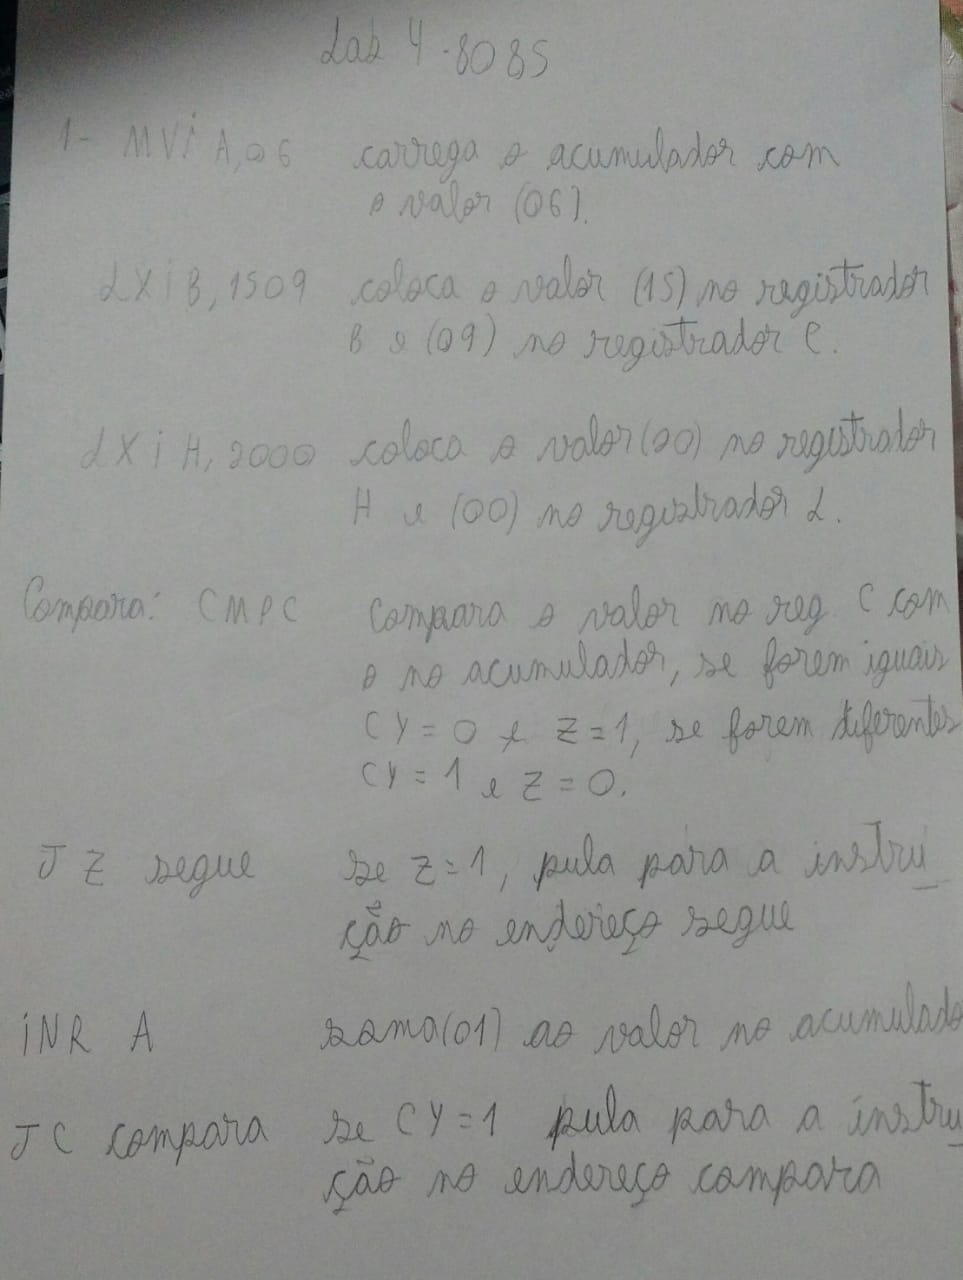 Lab 4 - 8085
1- MVi A,06 carrega o acumulador com
o valor (06).
LXi B,1509 coloca o valor (15) no registrador
B e (09) no registrador C.
LXi H,2000 coloca o valor (20) no registrador
H e (00) no registrador L.
Compara: CMPC Compara o valor no reg. C com
o no acumulador, se forem iguais
CY=0 e Z=1, se forem diferentes
CY=1 e Z=0.
JZ segue se Z=1, pula para a instru
ção no endereço segue
iNR A soma(01) ao valor no acumulado
JC compara se CY=1 pula para a instru
ção no endereço compara